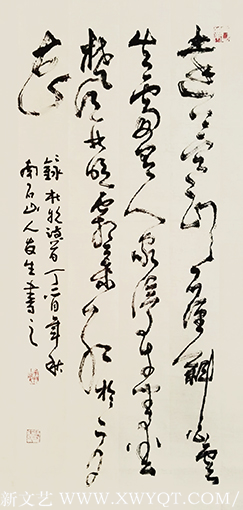 遠上寒山石徑斜白雲
生處有人家停車坐愛
楓林晚霜葉紅於二月
花
錄杜牧詩首丁酉年秋
南石山人友生書之
新文艺 WWW.XWYQT.COM/